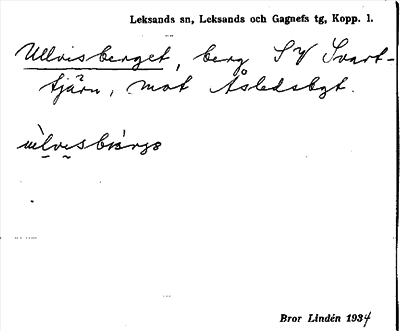 Leksands sn, Leksands och Gagnefs tg, Kopp. l.
Ullvisberget, berg S V Svart-
tjärn, mot Åsledsbgt.
Bror Lindén 1934